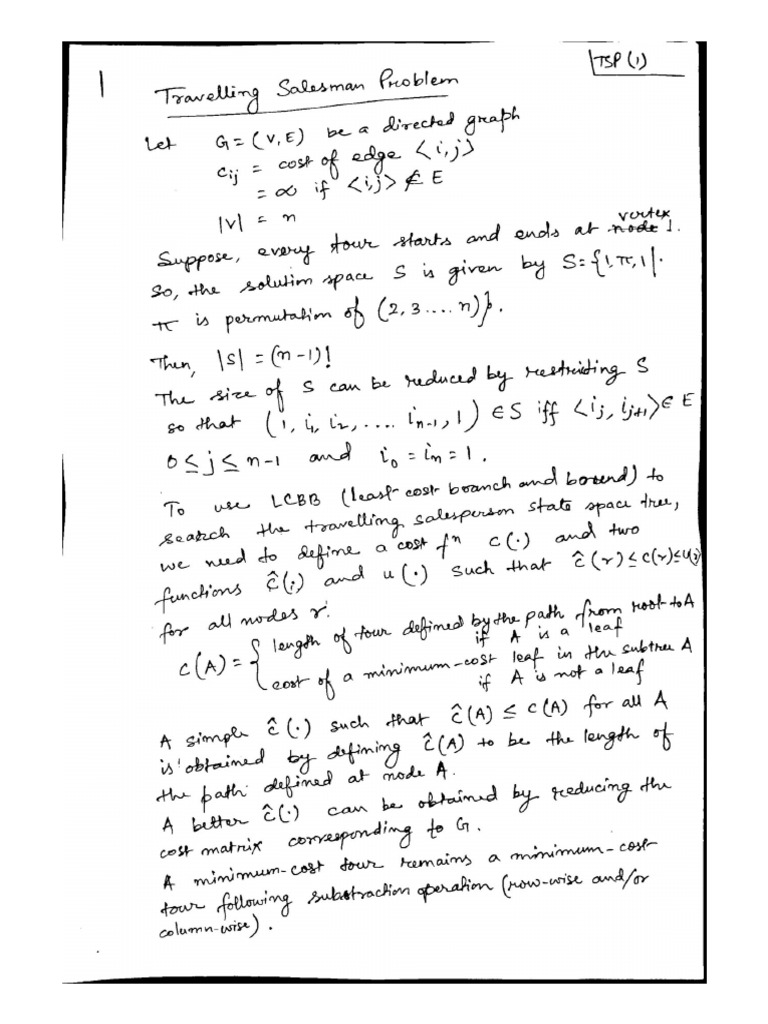 1
TSP (1)
Travelling Salesman Problem
Let G = (V, E) be a directed graph
c_ij = cost of edge <i,j>
= ∞ if <i,j> ∉ E
|V| = n
Suppose, every tour starts and ends at node vertex 1.
So, the solution space S is given by S = {1, π, 1 |
π is permutation of (2, 3 .... n)}.
Then, |S| = (n-1)!
The size of S can be reduced by restricting S
so that (1, i₁, i₂, .... i_n-1, 1) ∈ S iff <i_j, i_j+1> ∈ E
0 ≤ j ≤ n-1 and i₀ = i_n = 1.
To use LCBB (least-cost branch and bound) to
search the travelling salesperson state space tree,
we need to define a cost fⁿ c(·) and two
functions ĉ(·) and u(·) such that ĉ(r) ≤ c(r) ≤ u(r)
for all nodes r.
c(A) = { length of tour defined by the path from root to A
if A is a leaf
cost of a minimum-cost leaf in the subtree A
if A is not a leaf
A simple ĉ(·) such that ĉ(A) ≤ c(A) for all A
is obtained by defining ĉ(A) to be the length of
the path defined at node A.
A better ĉ(·) can be obtained by reducing the
cost matrix corresponding to G.
A minimum-cost tour remains a minimum-cost
tour following substraction operation (row-wise and/or
column-wise).